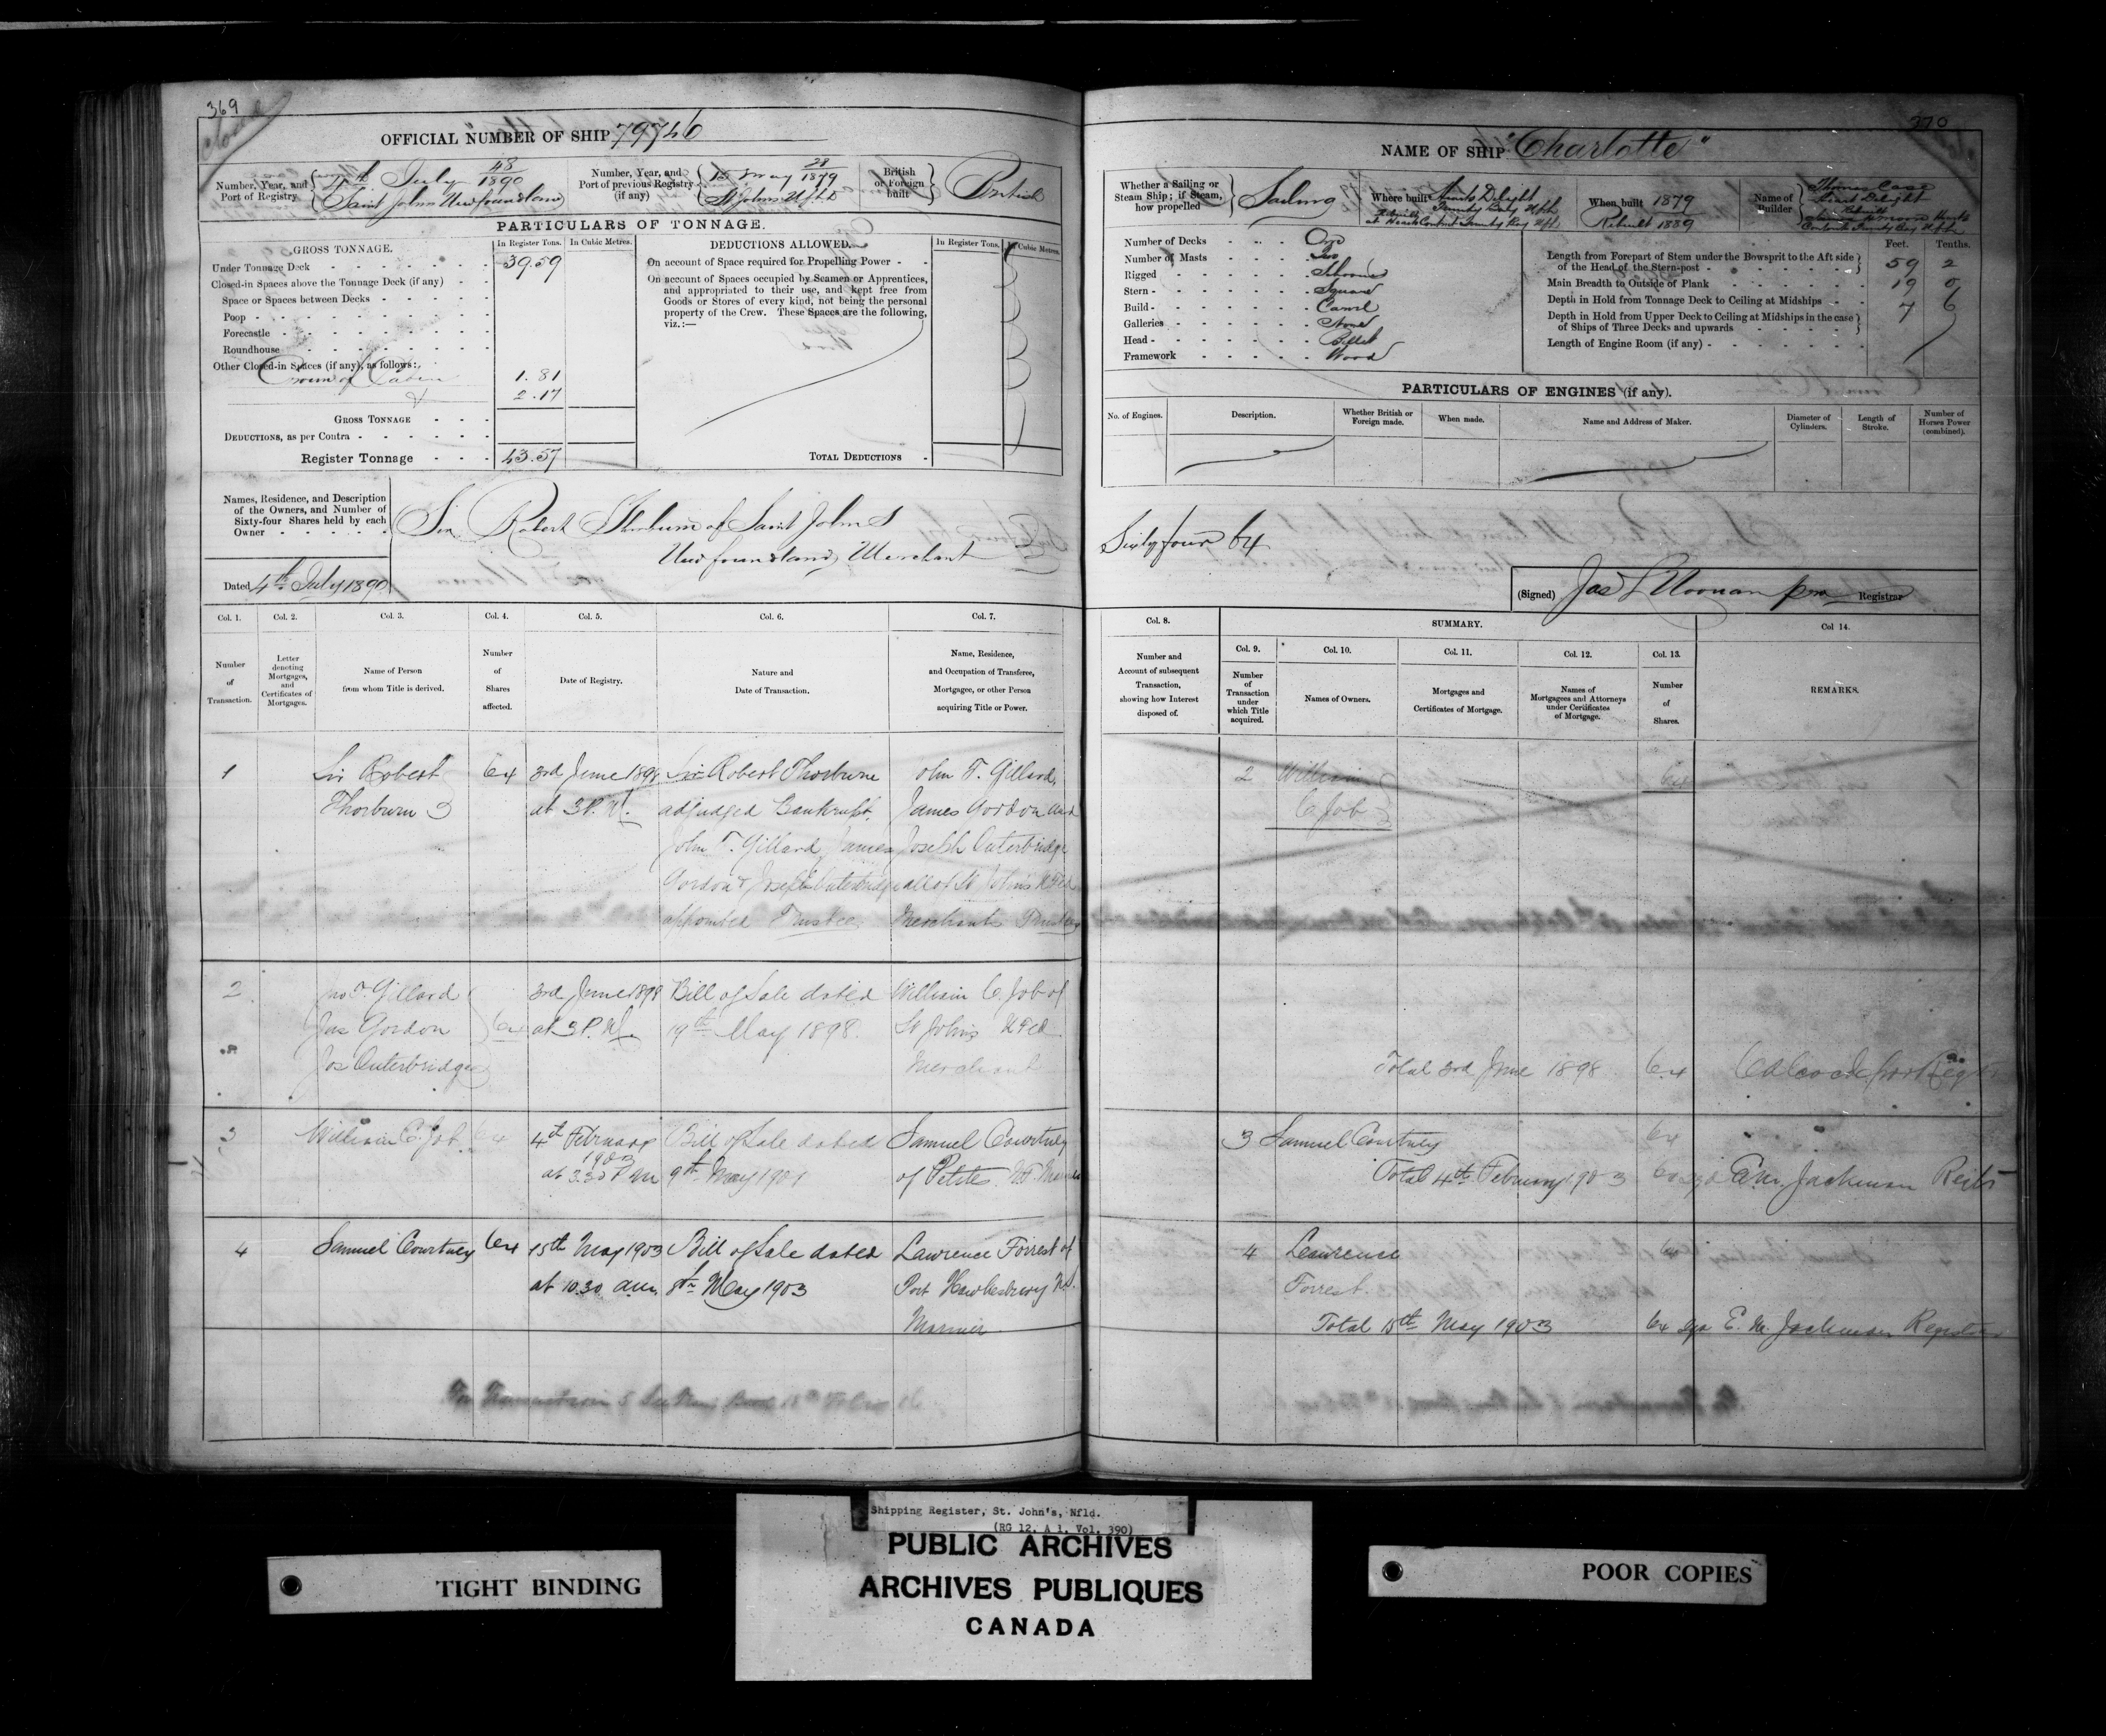 369
closed
OFFICIAL NUMBER OF SHIP 79746
Number, Year, and Port of Registry
4th July 48/1890
Saint Johns Newfoundland
Number, Year, and Port of previous Registry (if any)
1st May 28/1879
St Johns Nfld
British or Foreign built
British
PARTICULARS OF TONNAGE.
GROSS TONNAGE.
In Register Tons.
In Cubic Metres.
Under Tonnage Deck 39.59
Closed-in Spaces above the Tonnage Deck (if any)
Space or Spaces between Decks
Poop
Forecastle
Roundhouse
Other Closed-in Spaces (if any), as follows:
1.81
2.17
GROSS TONNAGE
DEDUCTIONS, as per Contra
Register Tonnage 43.57
DEDUCTIONS ALLOWED.
In Register Tons.
In Cubic Metres.
On account of Space required for Propelling Power
On account of Spaces occupied by Seamen or Apprentices,
and appropriated to their use, and kept free from
Goods or Stores of every kind, not being the personal
property of the Crew. These Spaces are the following,
viz.:—
TOTAL DEDUCTIONS
Names, Residence, and Description
of the Owners, and Number of
Sixty-four Shares held by each
Owner
Sir Robert Thorburn of Saint Johns
Newfoundland, Merchant
Dated 4th July 1890
Col. 1.
Number of Transaction.
Col. 2.
Letter denoting Mortgages, and Certificates of Mortgages.
Col. 3.
Name of Person from whom Title is derived.
Col. 4.
Number of Shares affected.
Col. 5.
Date of Registry.
Col. 6.
Nature and Date of Transaction.
Col. 7.
Name, Residence, and Occupation of Transferee, Mortgagee, or other Person acquiring Title or Power.
1 Sir Robert 64 3rd June 1898 Sir Robert Thorburn John T. Gillard,
Thorburn at 3 P.M. adjudged Bankrupt, James Gordon and
John T. Gillard, James Joseph Outerbridge
Gordon & Joseph Outerbridge all of St John's Nfld
appointed Trustees Merchants Trustees
2 Jno T. Gillard 3rd June 1898 Bill of Sale dated William C. Job of
Jas Gordon 64 at 3 P.M. 19th May 1898. St John's Nfld
Jos Outerbridge Merchant
3 William C. Job 64 4th February Bill of Sale dated Samuel Courtney
1903
at 3.30 P.M 9th May 1901 of Petites
4 Samuel Courtney 64 15th May 1903 Bill of Sale dated Lawrence Forrest of
at 10.30 a.m. 8th May 1903 Port Hawkesbury N.S.
Mariner
370
NAME OF SHIP "Charlotte"
Whether a Sailing or Steam Ship; if Steam, how propelled
Sailing
Where built
Hearts Delight
Trinity Bay Nfld
Rebuilt
at Hearts Content Trinity Bay Nfld
When built 1879
Rebuilt 1889
Name of Builder
Thomas Case
Heart Delight
Number of Decks One
Number of Masts Two
Rigged Schooner
Stern Square
Build Carvel
Galleries None
Head Billet
Framework Wood
Feet. Tenths.
Length from Forepart of Stem under the Bowsprit to the Aft side of the Head of the Stern-post 59 2
Main Breadth to Outside of Plank 19 0
Depth in Hold from Tonnage Deck to Ceiling at Midships 7 6
Depth in Hold from Upper Deck to Ceiling at Midships in the case of Ships of Three Decks and upwards
Length of Engine Room (if any)
PARTICULARS OF ENGINES (if any).
No. of Engines.
Description.
Whether British or Foreign made.
When made.
Name and Address of Maker.
Diameter of Cylinders.
Length of Stroke.
Number of Horses Power (combined).
Sixty four 64
(Signed) Jas L Noonan pro Registrar
Col. 8.
Number and Account of subsequent Transaction, showing how Interest disposed of.
SUMMARY.
Col. 9.
Number of Transaction under which Title acquired.
Col. 10.
Names of Owners.
Col. 11.
Mortgages and Certificates of Mortgage.
Col. 12.
Names of Mortgagees and Attorneys under Certificates of Mortgage.
Col. 13.
Number of Shares.
Col 14.
REMARKS.
2 William 64
C Job
Total 3rd June 1898 64
3 Samuel Courtney 64
Total 4th February 1903 64 sgd E.M. Jackman
4 Lawrence 64
Forrest.
Total 15th May 1903 64 sgd E. M. Jackman Registrar
Shipping Register, St. John's, Nfld.
(RG 12, A 1, Vol. 390)
PUBLIC ARCHIVES
ARCHIVES PUBLIQUES
CANADA
TIGHT BINDING
POOR COPIES